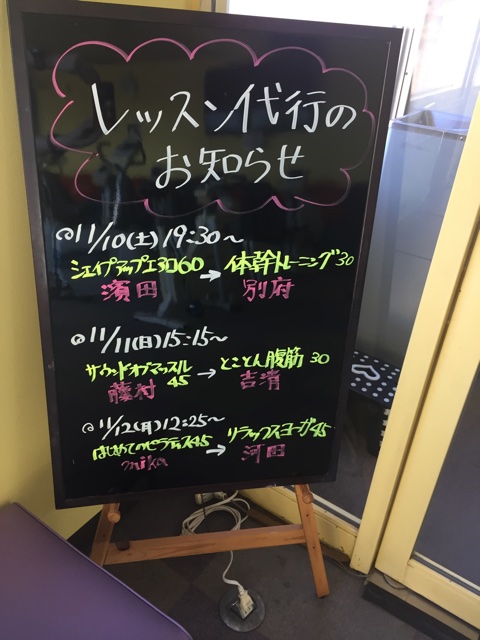 レッスン代行の
お知らせ
@11/10(土)19:30~
シェイプアップエアロ60→体幹トレーニング30
濱田 別府
@11/11(日)15:15~
サウンドオブマッスル45→とことん腹筋30
藤村 吉清
@11/12(月)12:25~
はじめてのピラティス45→リラックスヨーガ45
mika 河田